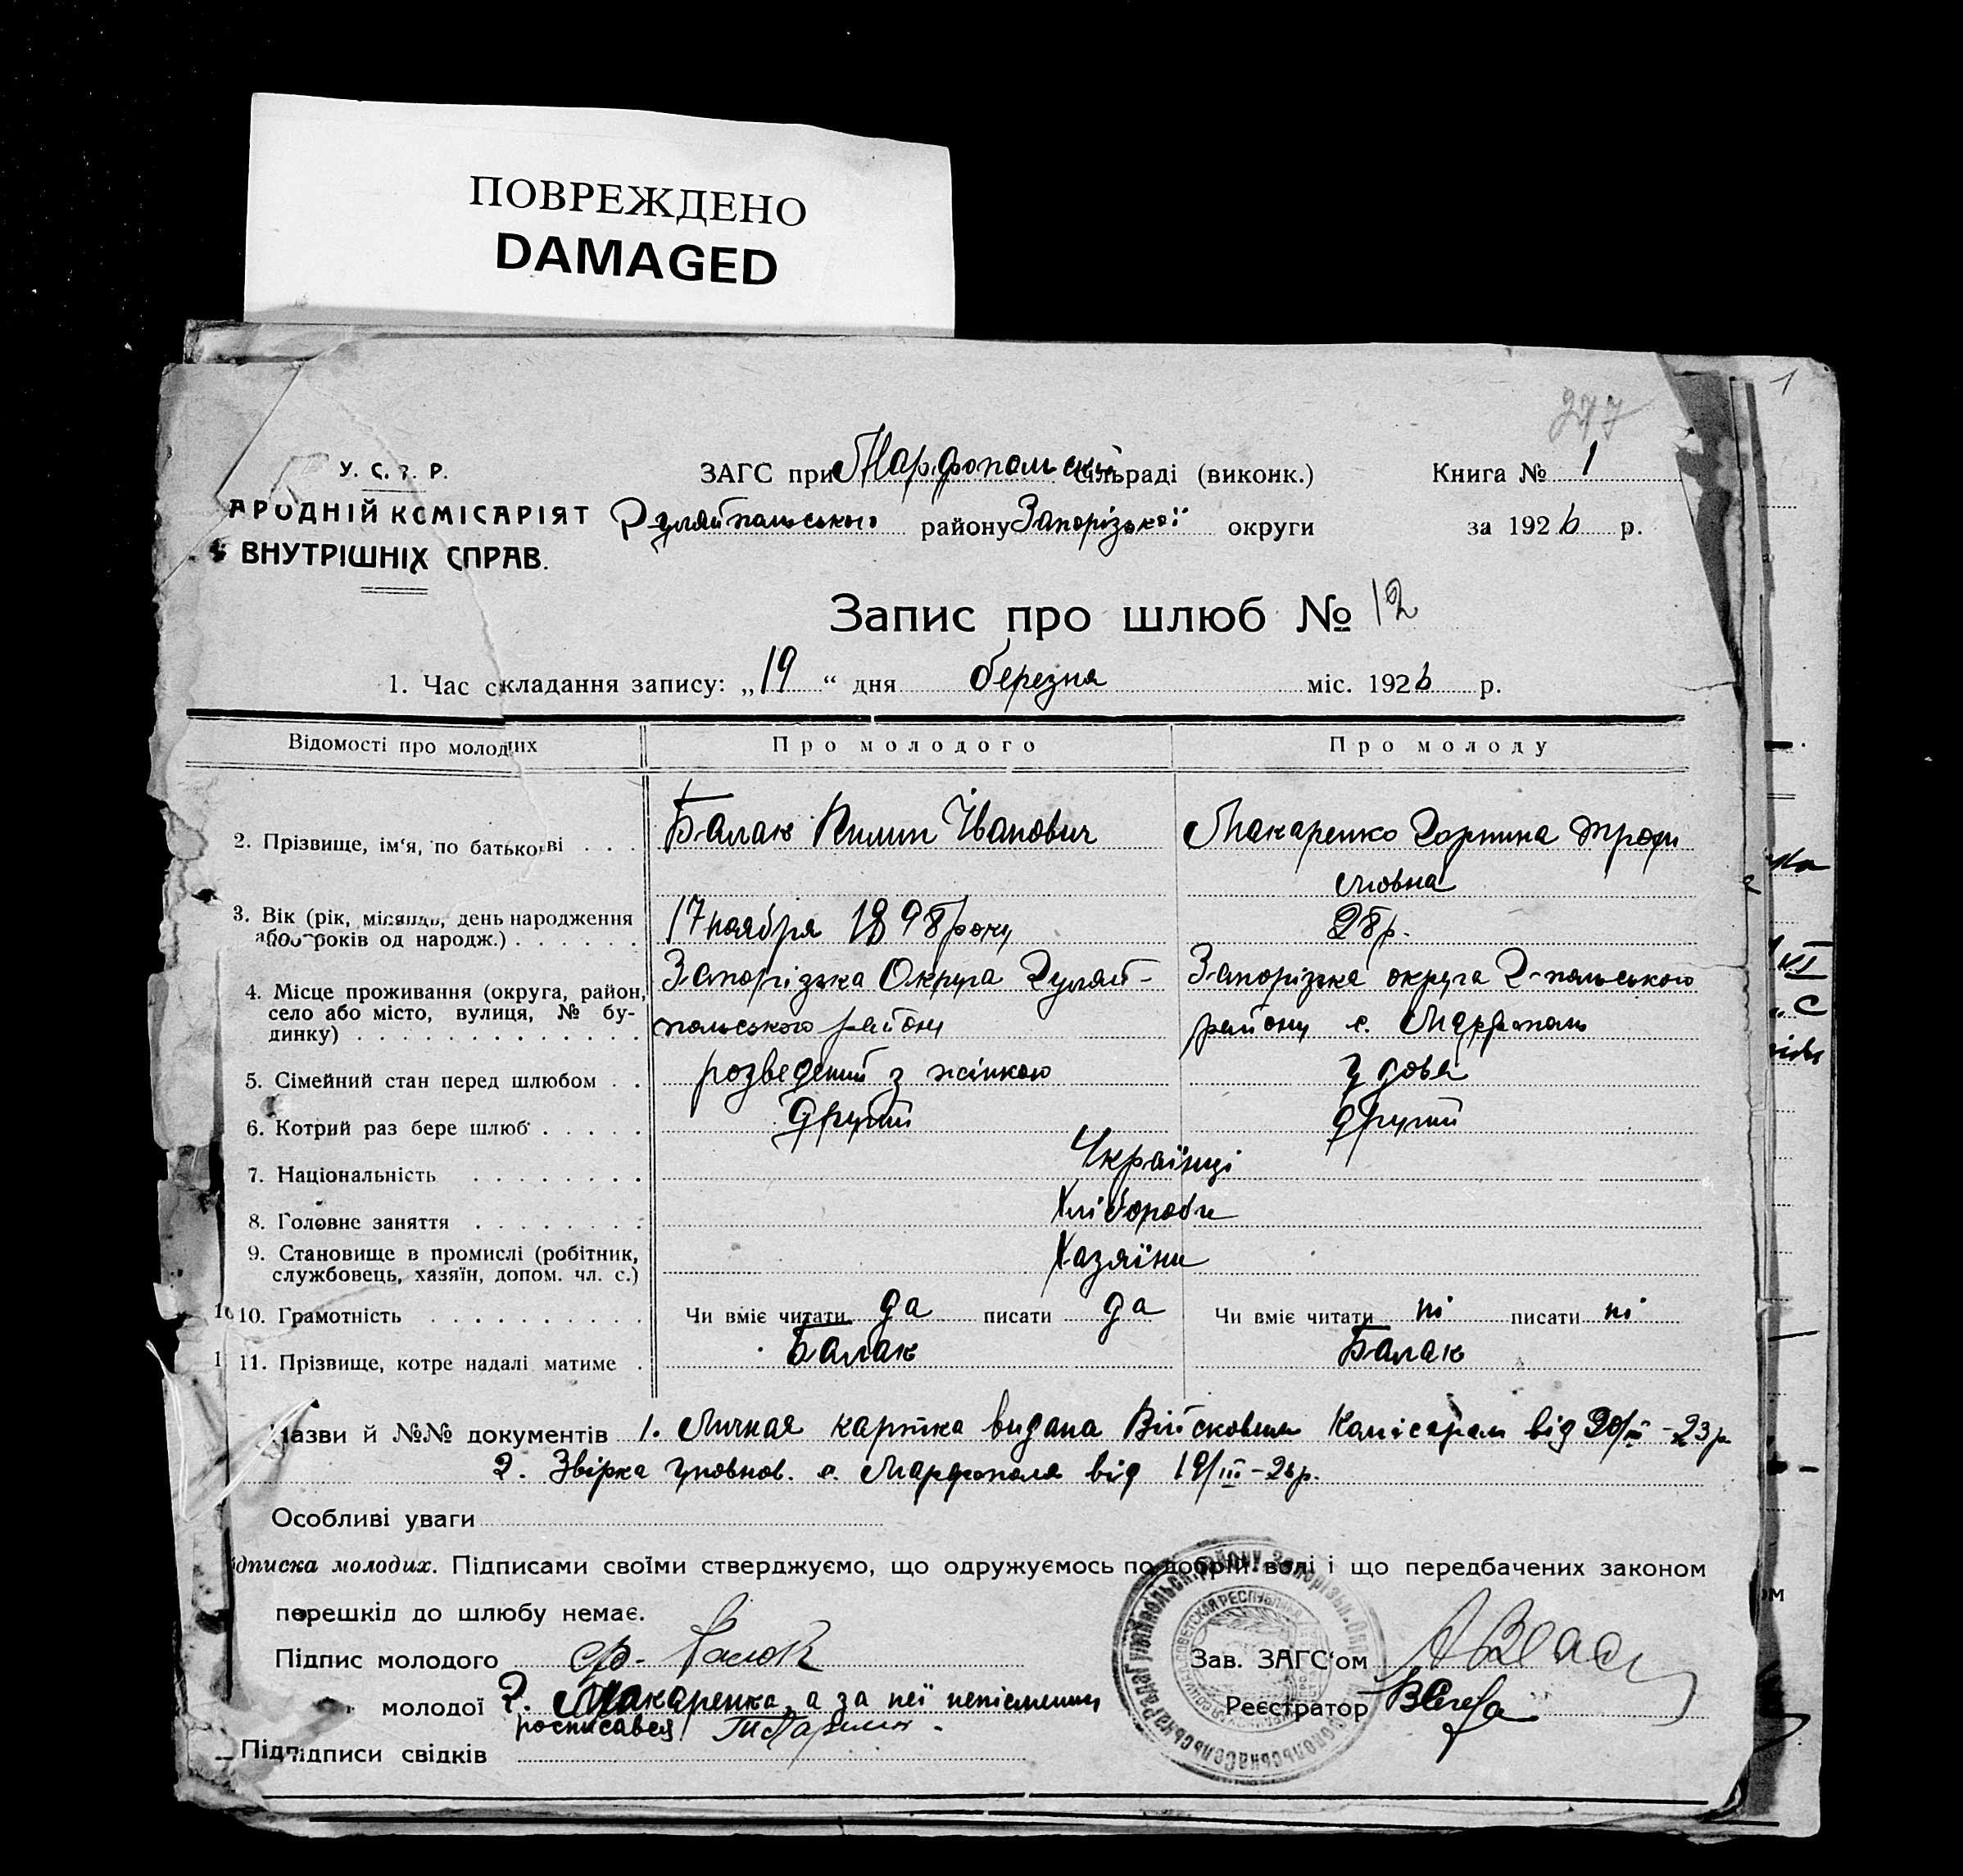 ПОВРЕЖДЕНО
DAMAGED
1
277
У. С. Р. Р.
АРОДНІЙ КОМІСАРІЯТ
ВНУТРІШНІХ СПРАВ.
ЗАГС при Марфопольскій сільраді (виконк.)
Гуляйпольського району Запорізької округи
Книга № 1
за 1926 р.
Запис про шлюб № 12
1. Час складання запису: „19“ дня березня міс. 1926 р.
Відомості про молодих
Про молодого
Про молоду
2. Прізвище, ім‘я, по батькові . . .
Балак Пилип Іванович
Макаренко Горпина Трофи
мовна
3. Вік (рік, місяць, день народження
або років од народж.) . . . . . .
17 ноября 1898 року
28 р.
4. Місце проживання (округа, район,
село або місто, вулиця, № бу-
динку) . . . . . . . . . . . . .
Запорізька Округа Гуляй-
польського району
Запорізька округа Г-польського
району с. Марфополь
5. Сімейний стан перед шлюбом . .
розведений з жінкою
удова
6. Котрий раз бере шлюб . . . . .
Другий
другий
7. Національність . . . . . . . .
Українці
8. Головне заняття . . . . . . . .
Хлібороби
9. Становище в промислі (робітник,
службовець, хазяїн, допом. чл. с.)
Хазяїни
10. Грамотність . . . . . . . . . .
Чи вміє читати да писати да
Чи вміє читати ні писати ні
11. Прізвище, котре надалі матиме .
Балак
Балак
Назви й №№ документів 1. Личная картка видана Війсковим Комісаром від 20/III-23 р
2. Звірка уповнов. с. Марфополя від 19/III-26 р.
Особливі уваги
дписка молодих. Підписами своїми стверджуємо, що одружуємось по добрій волі і що передбачених законом
перешкід до шлюбу немає.
Підпис молодого
молодої Г. Макаренка, а за неї неписменну
росписався
Підписи свідків
Зав. ЗАГС‘ом
Реєстратор